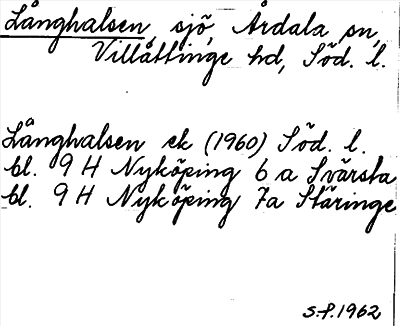 Långhalsen, sjö, Årdala sn,
Villåttinge hd, Söd. l.
Långhalsen ek (1960) Söd. l.
bl. 9 H Nyköping 6 a Svärsta
bl. 9 H Nyköping 7a Stäringe
S.P. 1962